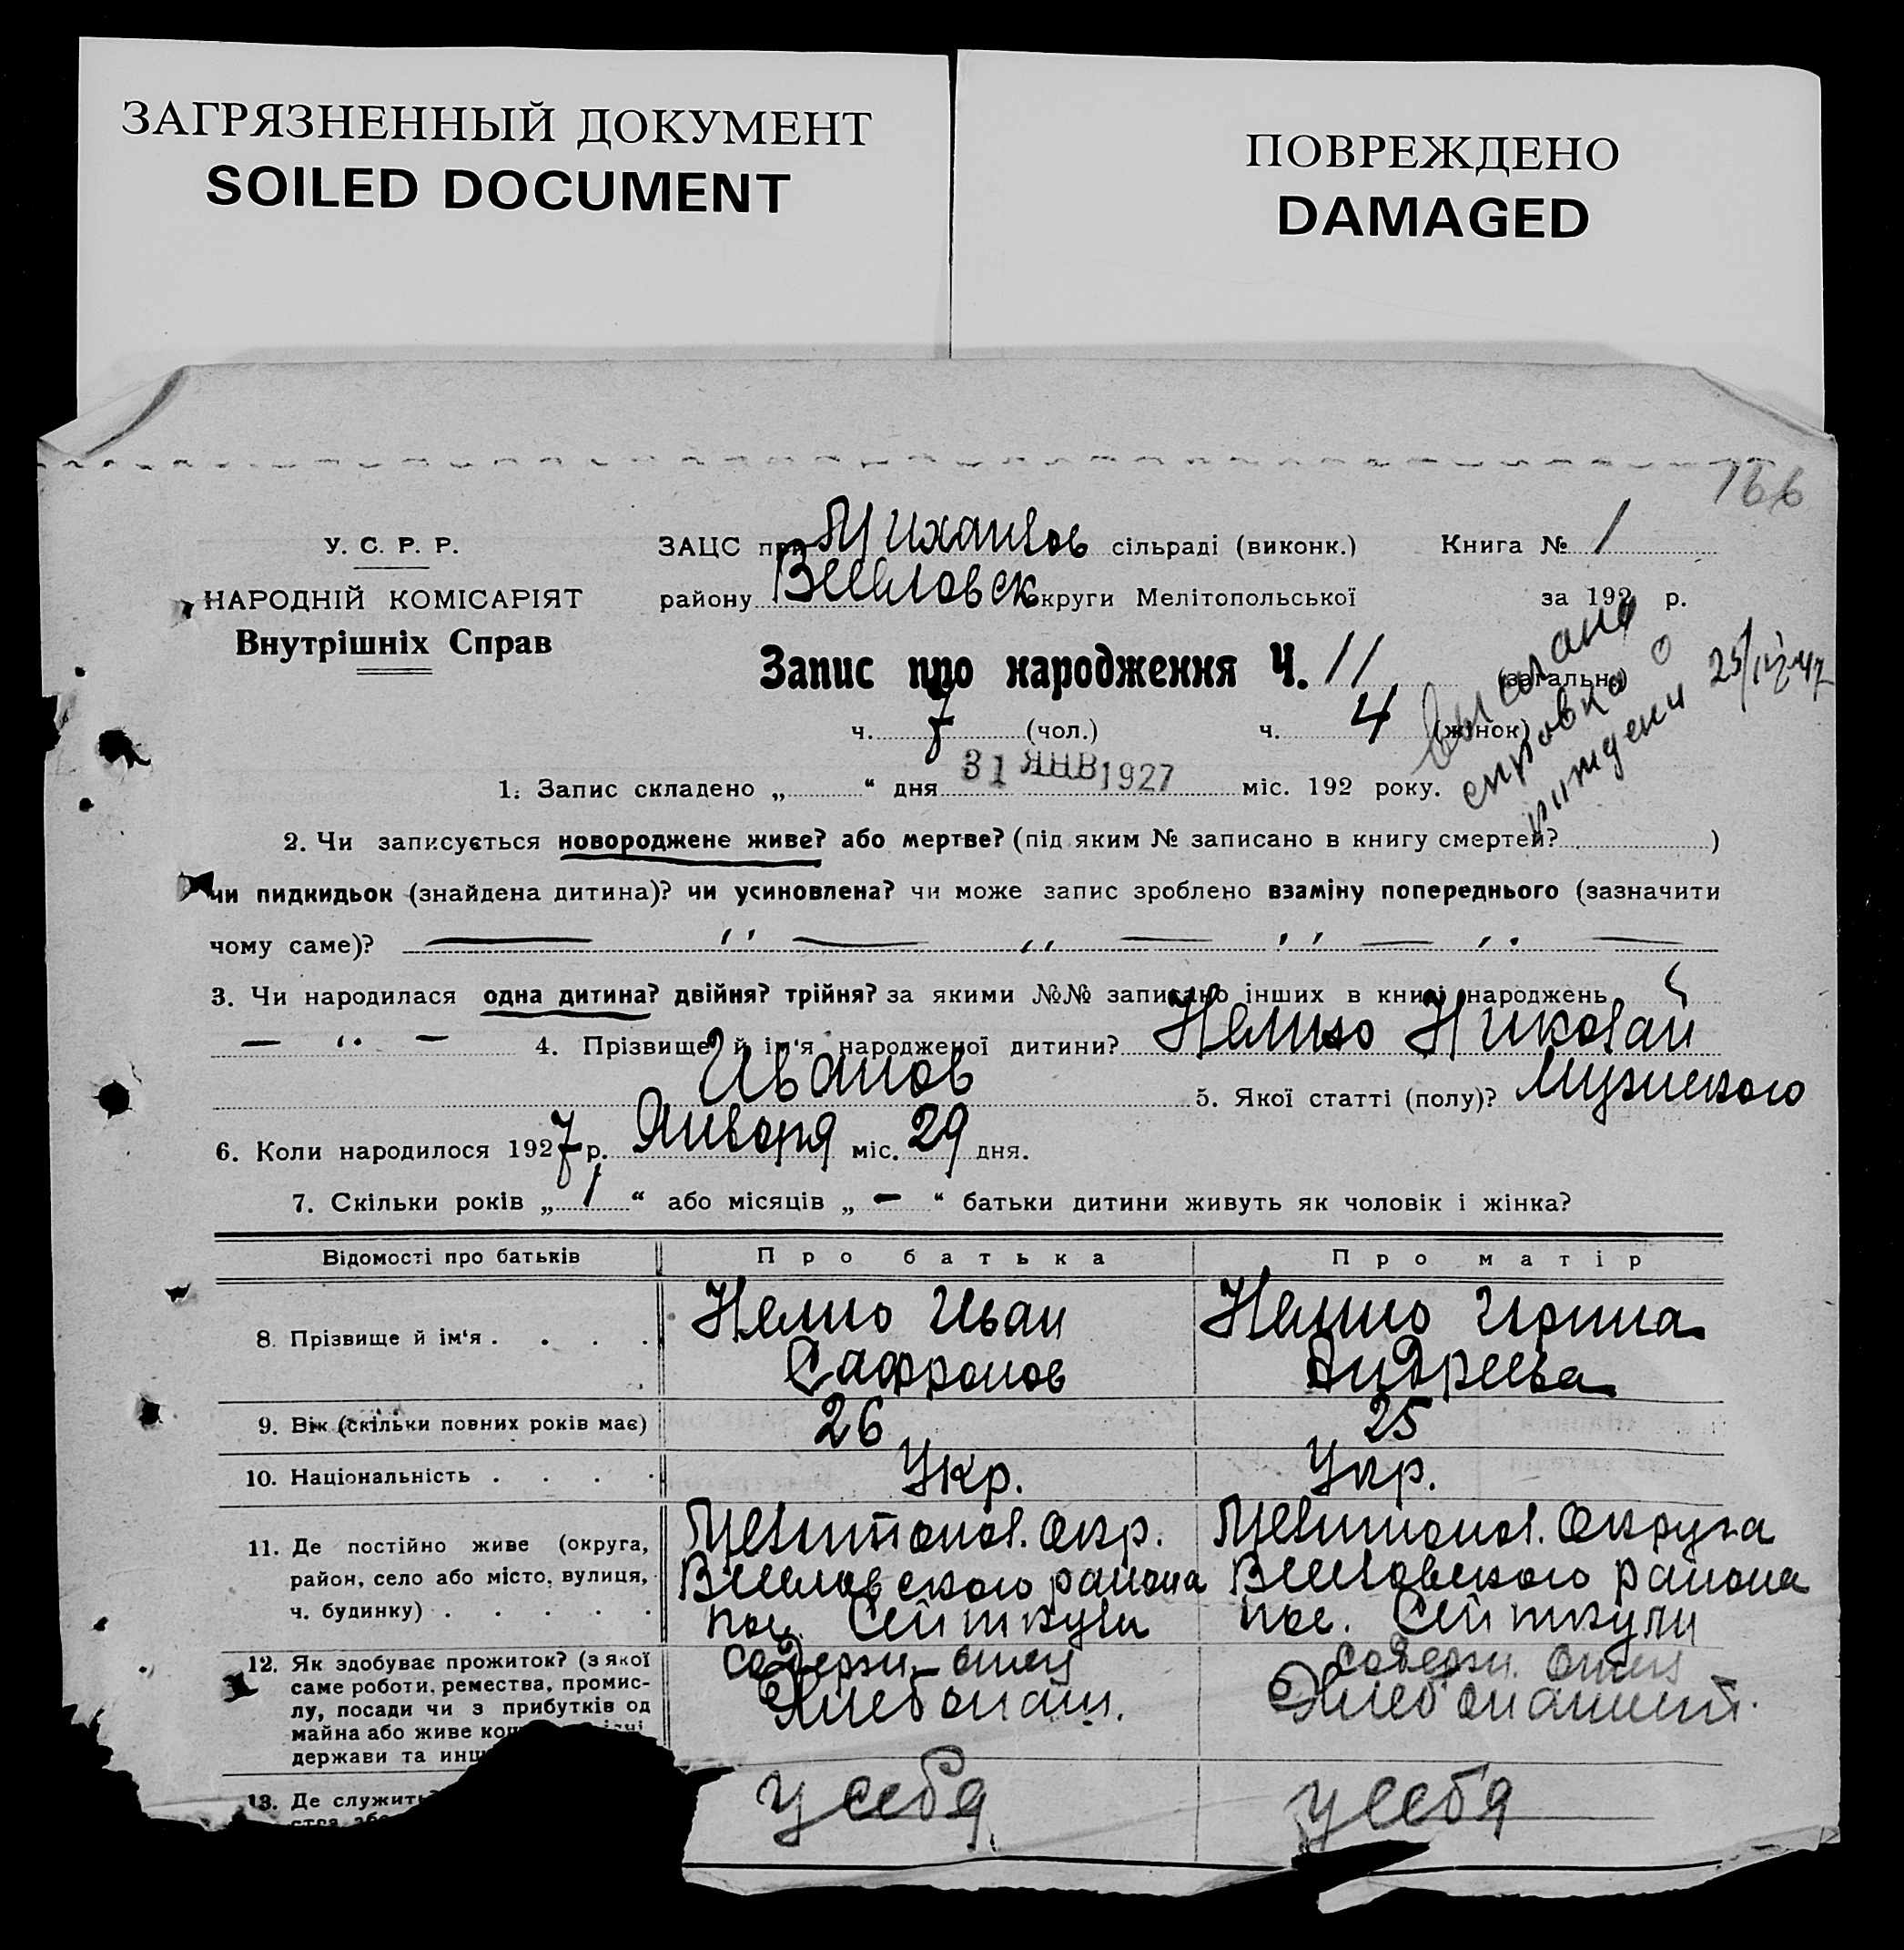 ЗАГРЯЗНЕННЫЙ ДОКУМЕНТ
SOILED DOCUMENT
ПОВРЕЖДЕНО
DAMAGED
166
У. С. Р. Р.
НАРОДНІЙ КОМІСАРІЯТ
Внутрішніх Справ
ЗАЦС при Михайлов сільраді (виконк.) Книга № 1
району Веселовск округи Мелітопольської за 192 р.
Запис про народження Ч. 11 (загальн.)
ч. 7 (чол.) ч. 4 (жінок)
Выслана справка о рождени 25/IV-47
1. Запис складено „ “ дня 31 ЯНВ 1927 міс. 192 року.
2. Чи записується новороджене живе? або мертве? (під яким № записано в книгу смертей? )
чи пидкидьок (знайдена дитина)? чи усиновлена? чи може запис зроблено взаміну попереднього (зазначити
чому саме)? — ,, — ,, — ,, — ,, —
3. Чи народилася одна дитина? двійня? трійня? за якими №№ записано інших в книзі народжень
— ,, — 4. Прізвище й ім'я народженої дитини? Немно Николай
Иванов 5. Якої статті (полу)? Мужского
6. Коли народилося 1927 р. Января міс. 29 дня.
7. Скільки років „ 1 “ або місяців „ — “ батьки дитини живуть як чоловік і жінка?
Відомості про батьків Про батька Про матір
8. Прізвище й ім'я . . . . Немно Иван Немно Ирина
Сафронов Андреева
9. Вік (скільки повних років має) 26 25
10. Національність . . . . Укр. Укр.
11. Де постійно живе (округа, Мелитопол. Окр. Мелитопол. Округа
район, село або місто, вулиця, Веселовского района Веселовского района
ч. будинку) . . . . . пос. Сейткули пос. Сейткули
12. Як здобуває прожиток? (з якої содержи. отец содержи. отец
саме роботи, ремества, промис- Хлебопаш. Хлебопашест.
лу, посади чи з прибутків од
майна або живе
держави та
13. Де служить у себя у себя